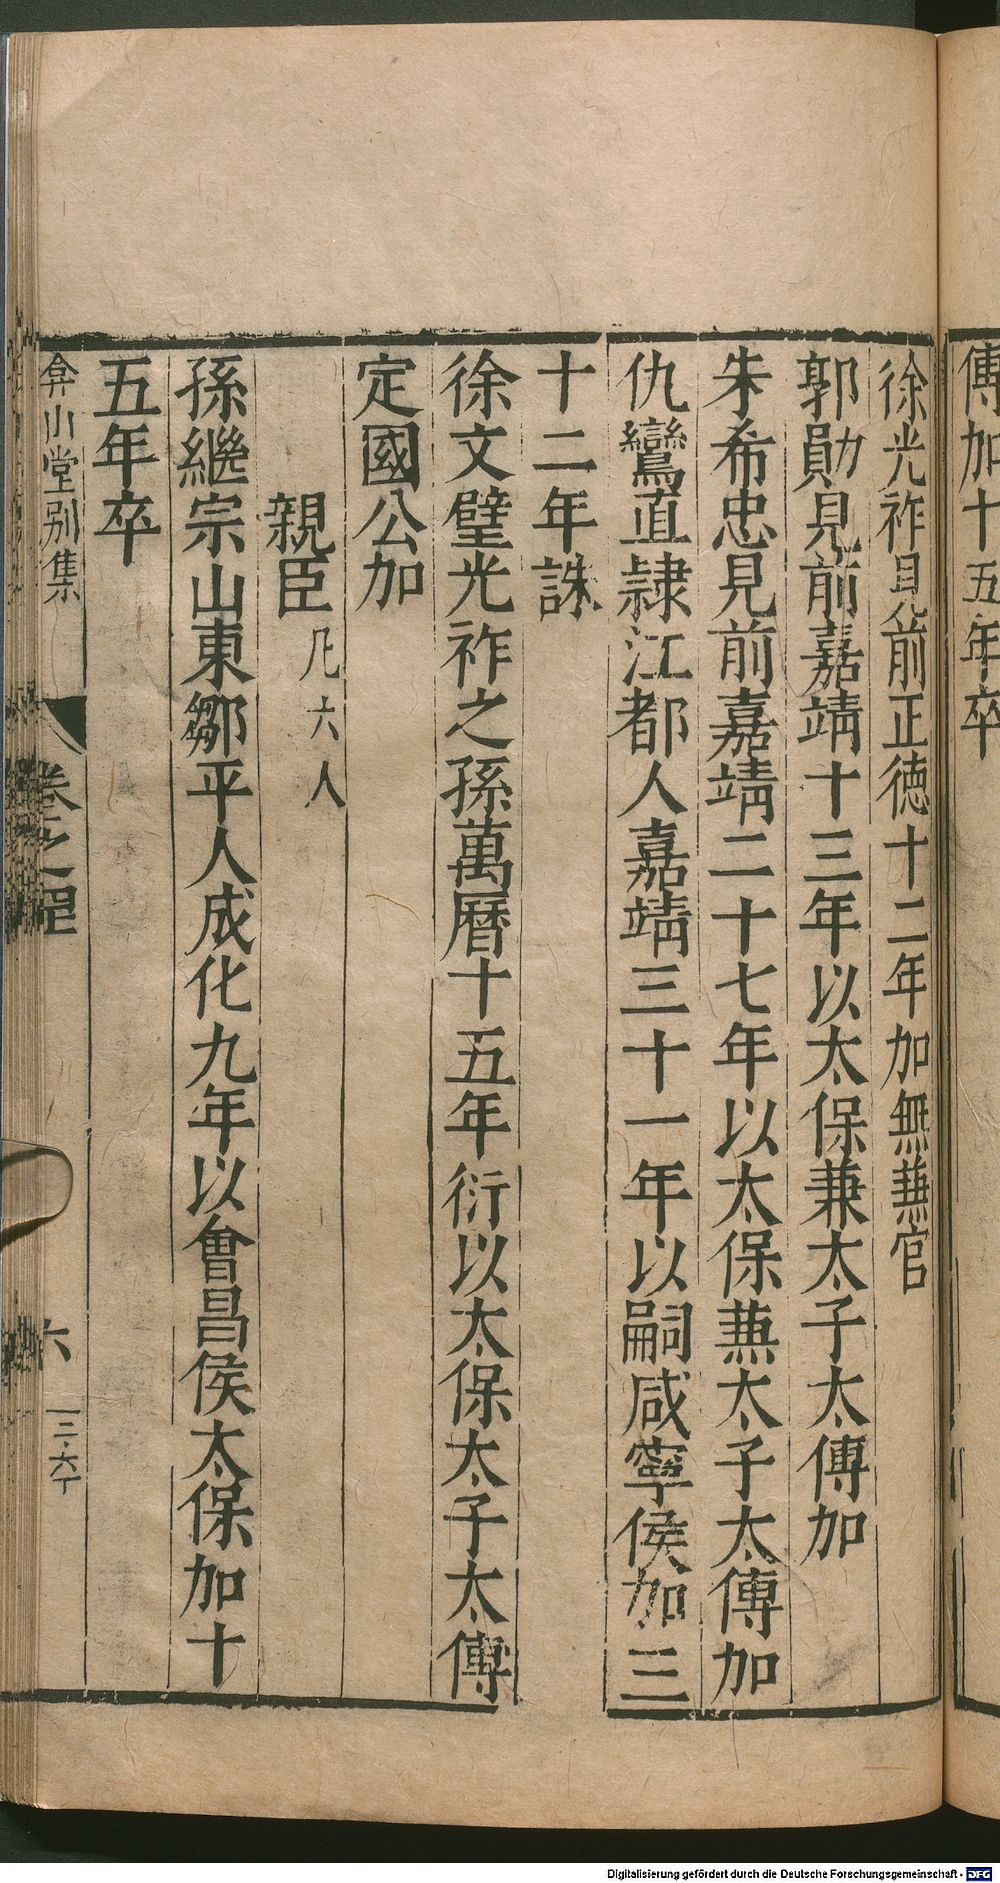 傅加十五年卒
徐光祚見前正德十二年加無蕪官
郭勛見前嘉靖十三年以太保兼太子太傅加
朱希忠見前嘉靖二十七年以太保蕪太子太傅加
仇鸞直隷江都人嘉靖三十一年以嗣咸寧侯加三
十二年誅
徐文璧光祚之孫萬曆十五年衍以太保太子太傅
定國公加
親臣凡六人
孫繼宗山東鄒平人成化九年以會昌侯太保加十
五年卒
弇山堂别集
卷之
六
Digitalisierung gefördert durch die Deutsche Forschungsgemeinschaft - DFG